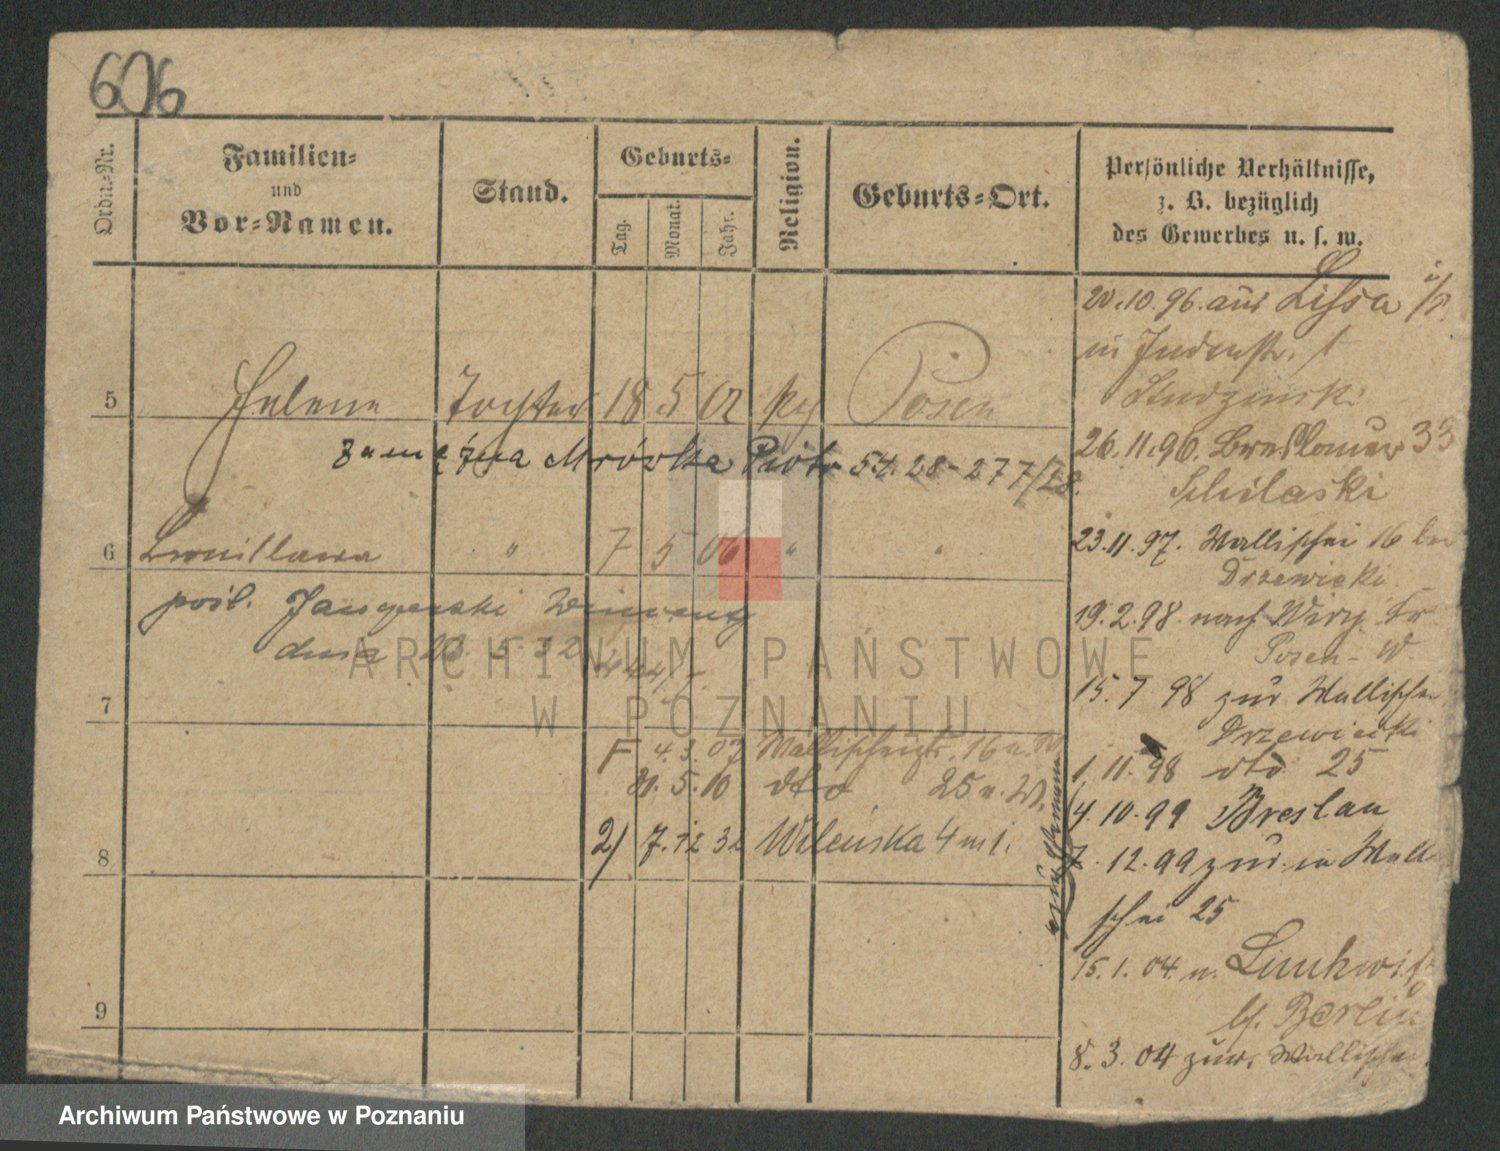 606
Ordn.-Nr.
Familien-
und
Vor-Namen.
Stand.
Geburts-
Tag.
Monat.
Jahr.
Religion.
Geburts-Ort.
Persönliche Verhältnisse,
z. B. bezüglich
des Gewerbes u. s. w.
5 Helene Tochter 18 5 02 Posen
zamężna Mrówka Piotr 54.28-277/28.
6 7 5 06 " "
pośl.
dnia 28.5.32
7
F 4.3.07 Wallischeistr. 16 n. W.
21.5.10 dto 25 n. W.
8 2) 7.12 32 Wileńska 4 m 1.
9
20.10.96. aus Lissa i/P.
in Judenstr. 1
Studzinski
26.11.96. Breslauer 33
23.11.97. Wallischei 16 bei
Drzewiecki
19.2.98. nach Wiry Kr
Posen-W.
15.7 98 zur Wallischei
Drzewiecki
1.11.98 dto 25
4.10.99 Breslau
7.12.99 zur. in Walli
schei 25
15.1.04. n. Lankwitz
b/. Berlin
8.3.04 zur. Wallischei
ARCHIWUM PAŃSTWOWE
W POZNANIU
Archiwum Państwowe w Poznaniu